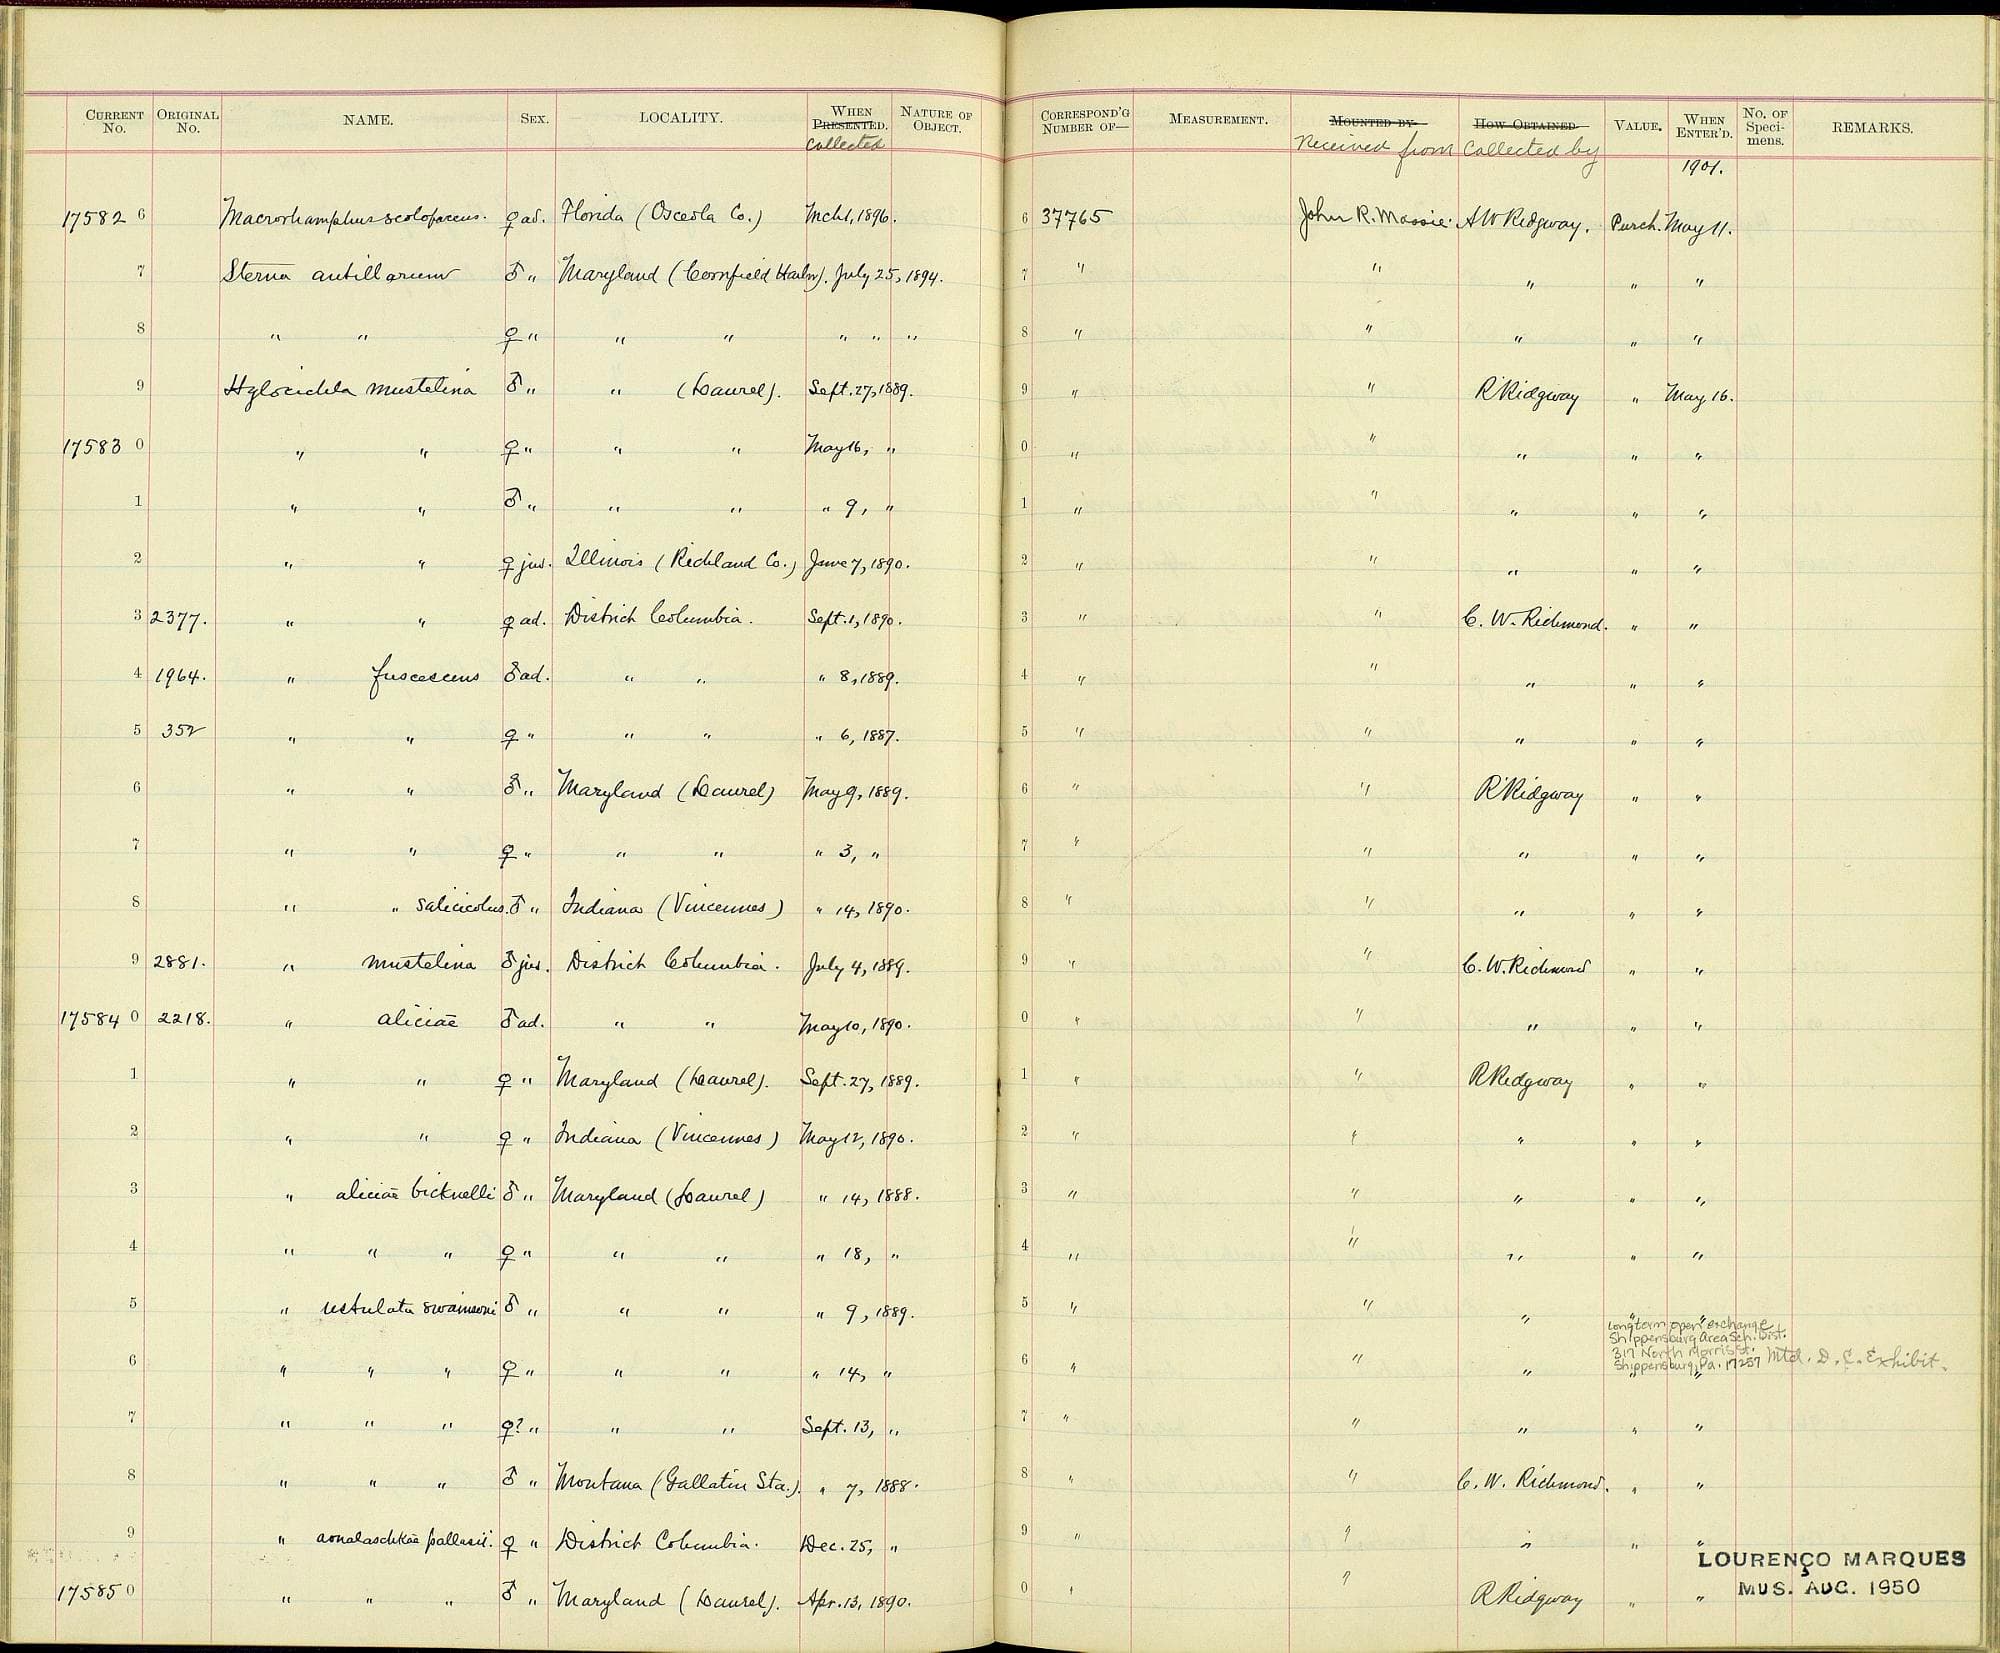 CURRENT No. ORIGINAL No. NAME. SEX. LOCALITY. WHEN PRESENTED. collected NATURE OF OBJECT. CORRESPOND'G NUMBER OF— MEASUREMENT. MOUNTED BY Received from HOW OBTAINED Collected by VALUE. WHEN ENTER'D. No. OF Speci- mens. REMARKS.
1901.
17582 6 Macrorhamphus scolopaceus. ♀ ad. Florida (Osceola Co.) Mch 1, 1896. 6 37765 John R. Massie. A W Ridgway. Purch. May 11.
7 Sterna antillarum ♂ " Maryland (Cornfield Harbr). July 25, 1894. 7 " " " " "
8 " " ♀ " " " " " " 8 " " " " "
9 Hylocichla mustelina ♂ " " (Laurel). Sept. 27, 1889. 9 " " R Ridgway " May 16.
17583 0 " " ♀ " " " May 16, " 0 " " " " "
1 " " ♂ " " " " 9, " 1 " " " " "
2 " " ♀ juv. Illinois (Richland Co.) June 7, 1890. 2 " " " " "
3 2377. " " ♀ ad. District Columbia. Sept. 1, 1890. 3 " " C. W. Richmond. " "
4 1964. " fuscescens ♂ ad. " " " 8, 1889. 4 " " " " "
5 352 " " ♀ " " " " 6, 1887. 5 " " " " "
6 " " ♂ " Maryland (Laurel) May 9, 1889. 6 " " R Ridgway " "
7 " " ♀ " " " " 3, " 7 " " " " "
8 " " salicicolus. ♂ " Indiana (Vincennes) " 14, 1890. 8 " " " " "
9 2881. " mustelina ♂ juv. District Columbia. July 4, 1889. 9 " " C. W. Richmond " "
17584 0 2218. " aliciae ♂ ad. " " May 10, 1890. 0 " " " " "
1 " " ♀ " Maryland (Laurel). Sept. 27, 1889. 1 " " R Ridgway " "
2 " " ♀ " Indiana (Vincennes) May 12, 1890. 2 " " " " "
3 " aliciae bicknelli ♂ " Maryland (Laurel) " 14, 1888. 3 " " " " "
4 " " " ♀ " " " " 18, " 4 " " " " "
5 " ustulata swainsoni ♂ " " " " 9, 1889. 5 " " " " "
Longterm open exchange
Shippensburg Area Sch. Dist.
317 North Morris St.
Shippensburg, Pa. 17257 Mtd. D. C. Exhibit.
6 " " " ♀ " " " " 14, " 6 " " " " "
7 " " " ♀? " " " Sept. 13, " 7 " " " " "
8 " " " ♂ " Montana (Gallatin Sta.). " 7, 1888. 8 " " C. W. Richmond. " "
9 " aonalaschkae pallasii. ♀ " District Columbia. Dec. 25, " 9 " " " " "
17585 0 " " " ♂ " Maryland (Laurel). Apr. 13, 1890. 0 " " R Ridgway " "
LOURENÇO MARQUES
MUS. AUG. 1950